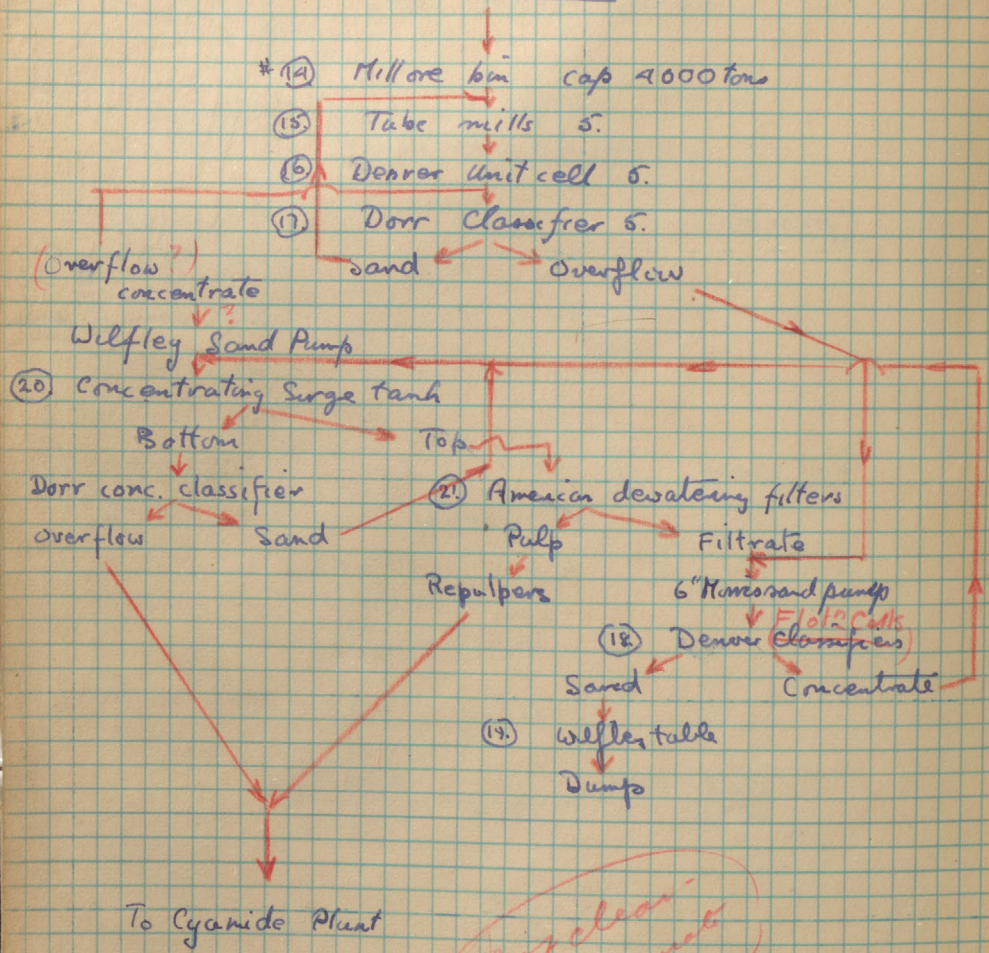 # 14 Mill ore bin cap 4000 tons
15. Tube mills 5.
16 Denver Unit cell 5.
17. Dorr Classifier 5.
Sand Overflow
(Overflow?)
concentrate
?
Wilfley Sand Pump
20. Concentrating Surge tank
Bottom Top
Dorr conc. classifier
21. American dewatering filters
overflow Sand
Pulp Filtrate
Repulpers
6" sand pump
Flotn Cells
18. Denver (Classifiers)
Sand Concentrate
19. Wilfley table
Dump
To Cyamide Plant
clean